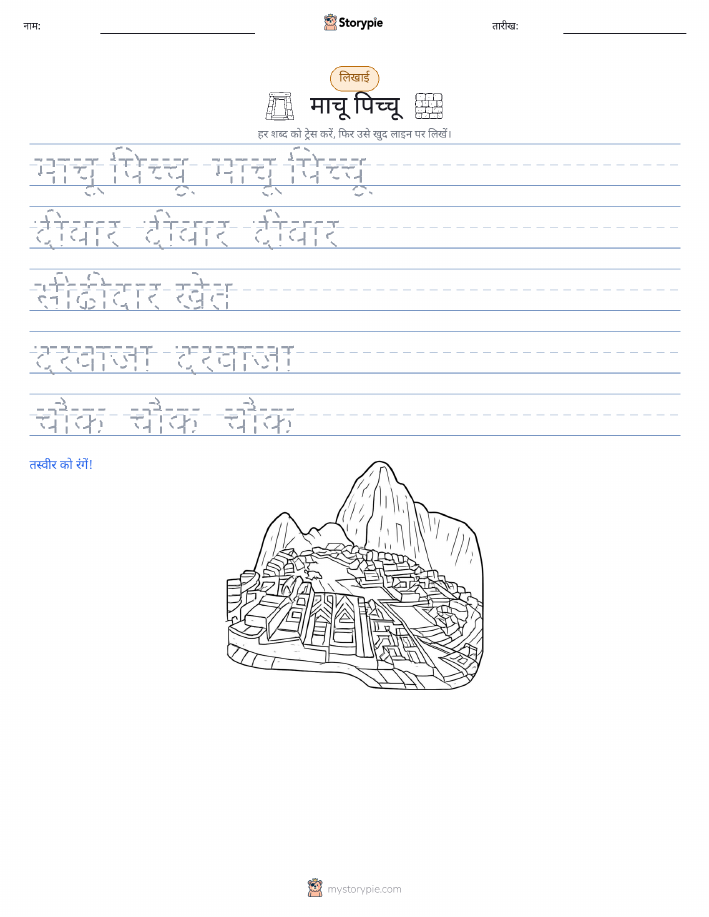 नाम:
Storypie
तारीख:
लिखाई
माचू पिच्चू
हर शब्द को ट्रेस करें, फिर उसे खुद लाइन पर लिखें।
माचू पिच्चू माचू पिच्चू
दीवार दीवार दीवार
सीढ़ीदार खेत
दरवाजा दरवाजा
चौक चौक चौक
तस्वीर को रंगें!
mystorypie.com